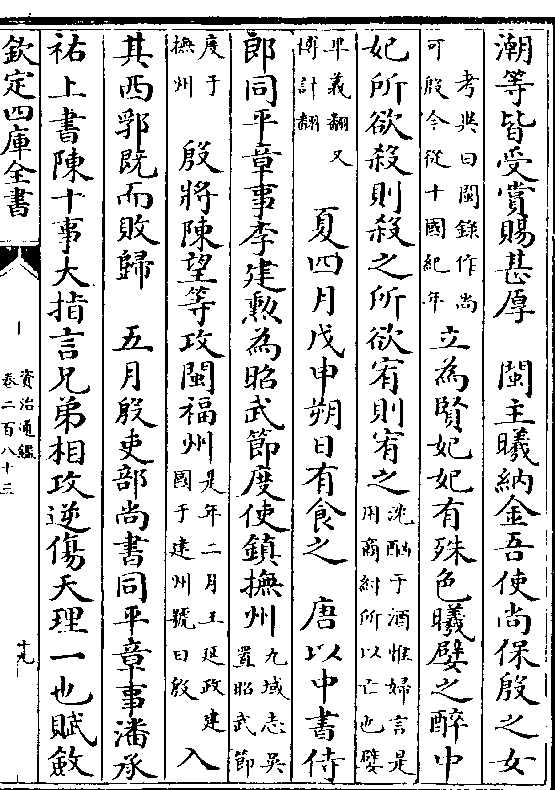 潮等皆受賞賜甚厚　閩主曦納金吾使尚保殷之女
考異曰閩錄作尚
可殷今從十國紀年
立為賢妃妃有殊色曦嬖之醉中
妃所欲殺則殺之所欲宥則宥之
沈酗于酒惟婦言是
用商紂所以亡也嬖
卑義翻又
博計翻
夏四月戊申朔日有食之　唐以中書侍
郎同平章事李建勲為昭武節度使鎮撫州
九域志吳
置昭武節
度于
撫州
殷將陳望等攻閩福州
是年二月王延政建
國于建州號曰殷
入
其西郛既而敗歸　五月殷吏部尚書同平章事潘承
祐上書陳十事大指言兄弟相攻逆傷天理一也賦斂
欽定四庫全書
資治通鑑
卷二百八十三
十九